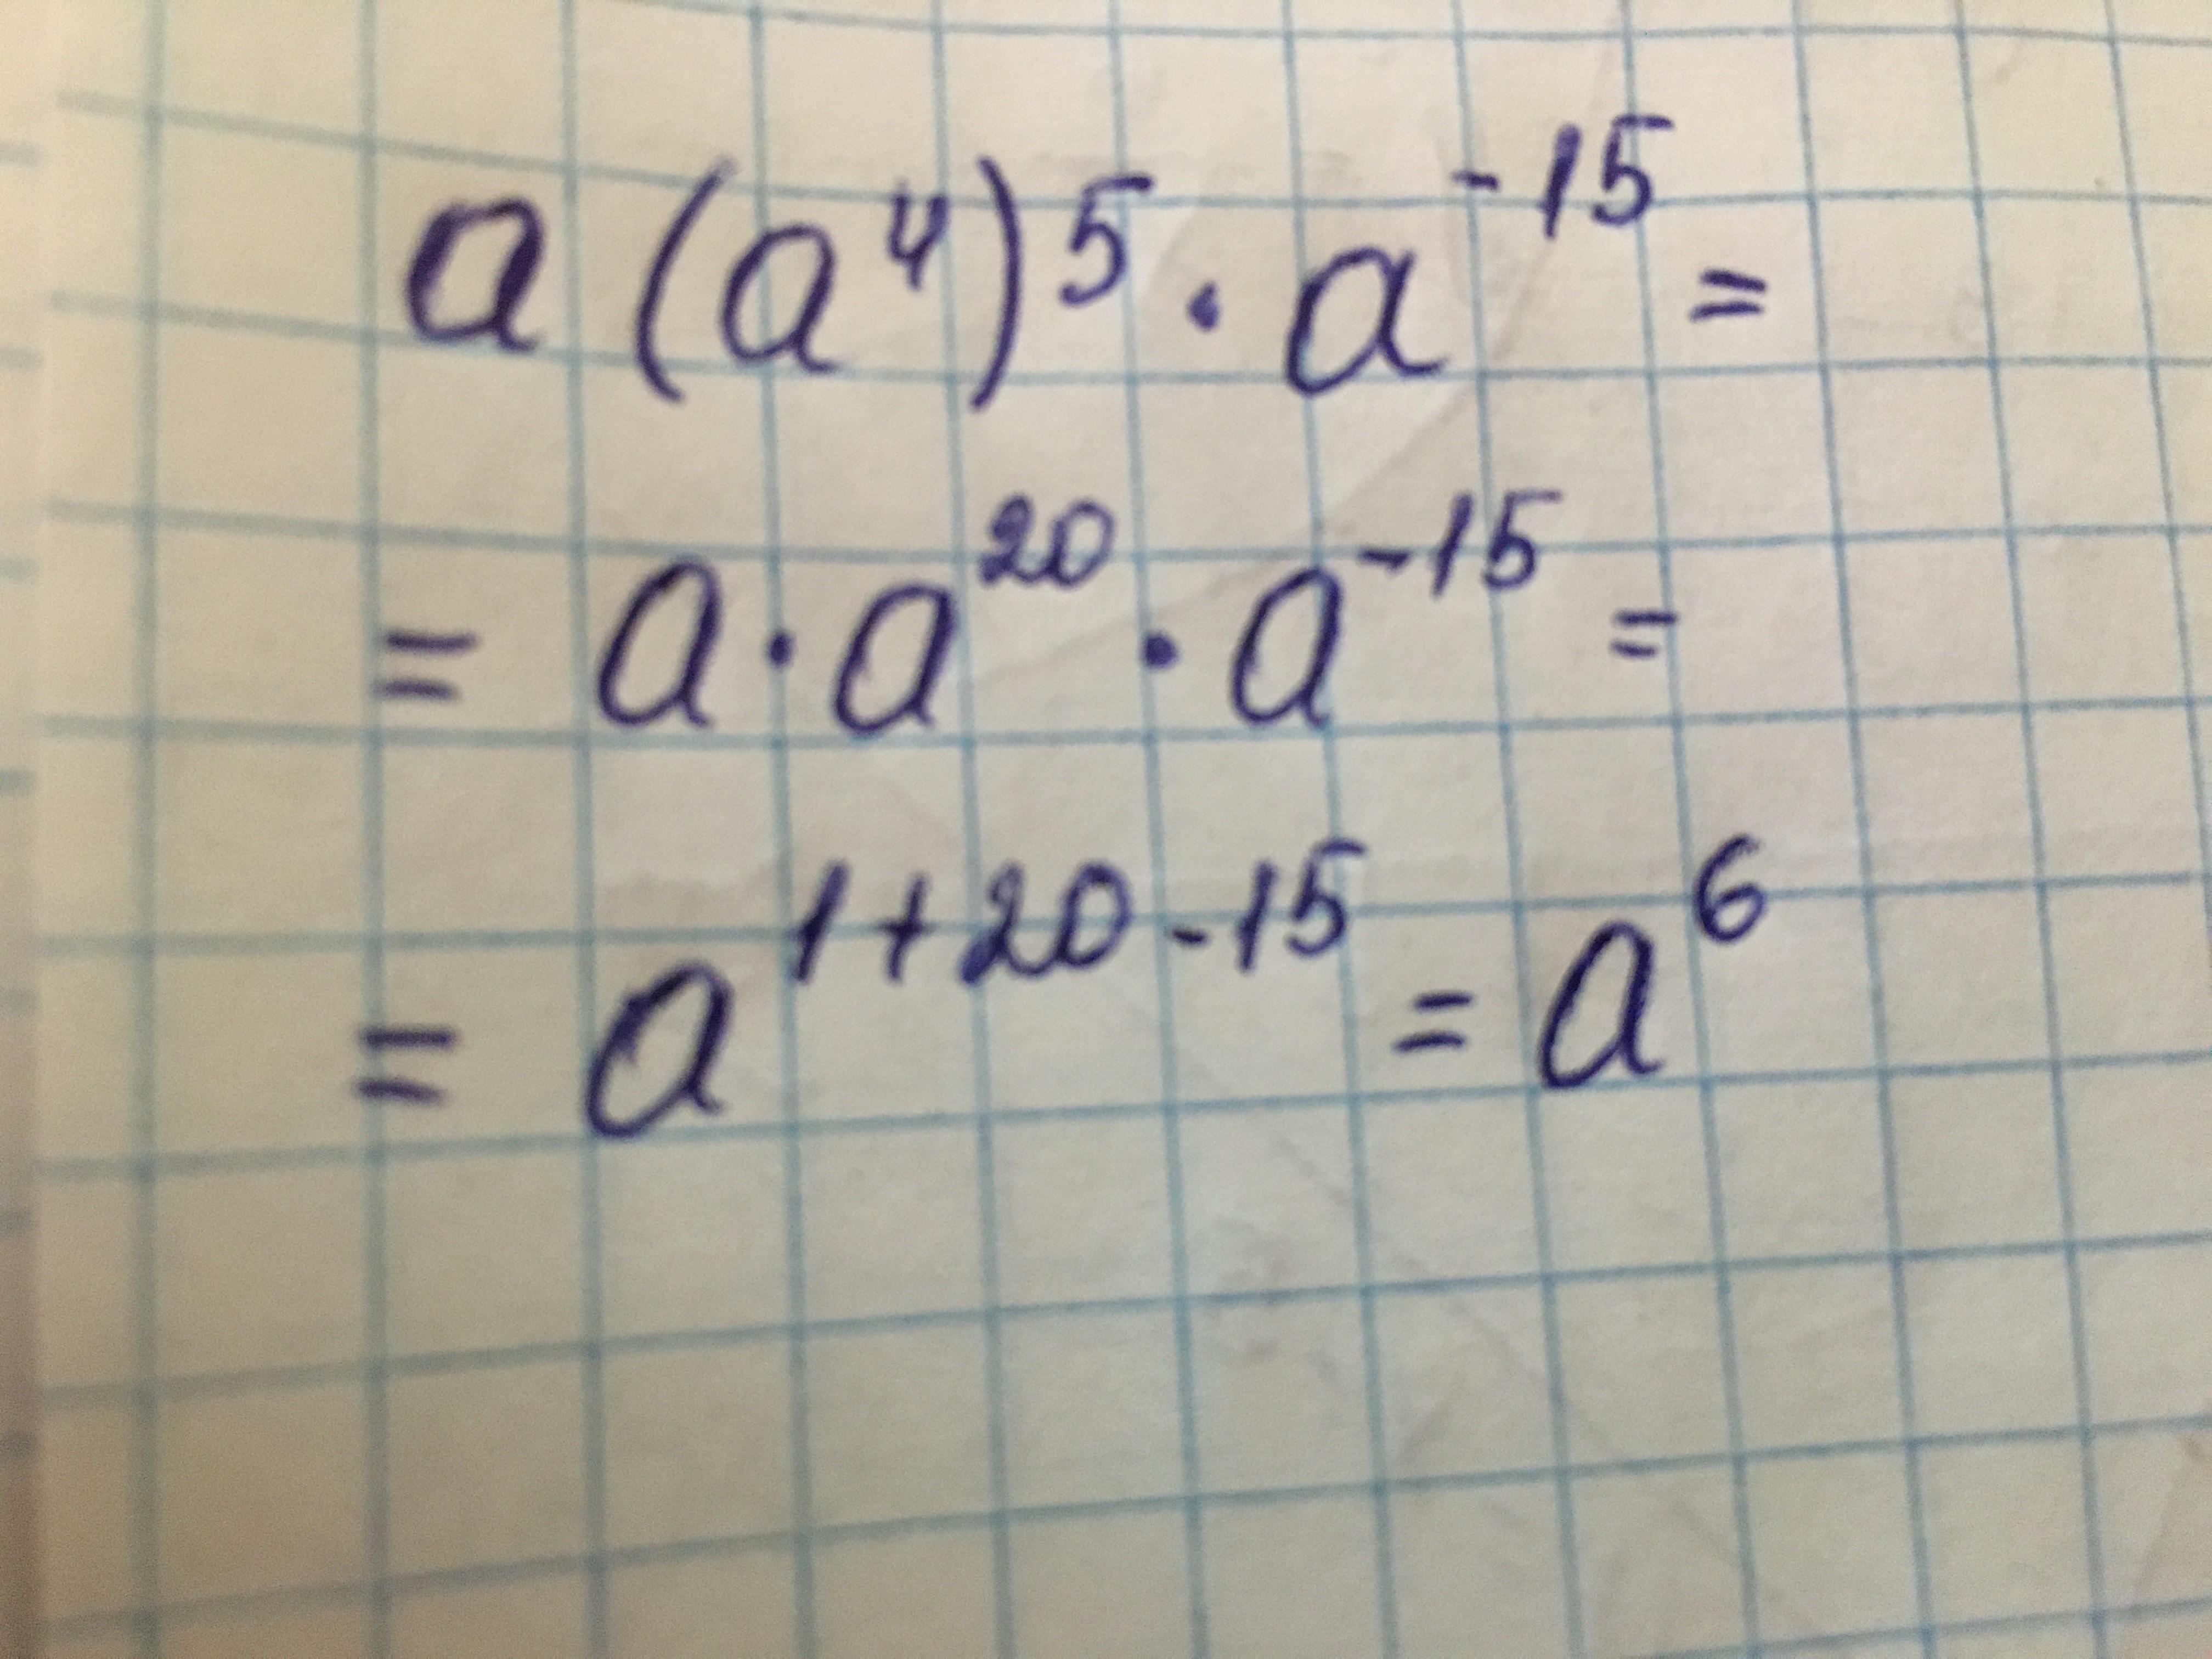 a(a⁴)⁵ · a⁻¹⁵ =
= a · a²⁰ · a⁻¹⁵ =
= a¹⁺²⁰⁻¹⁵ = a⁶